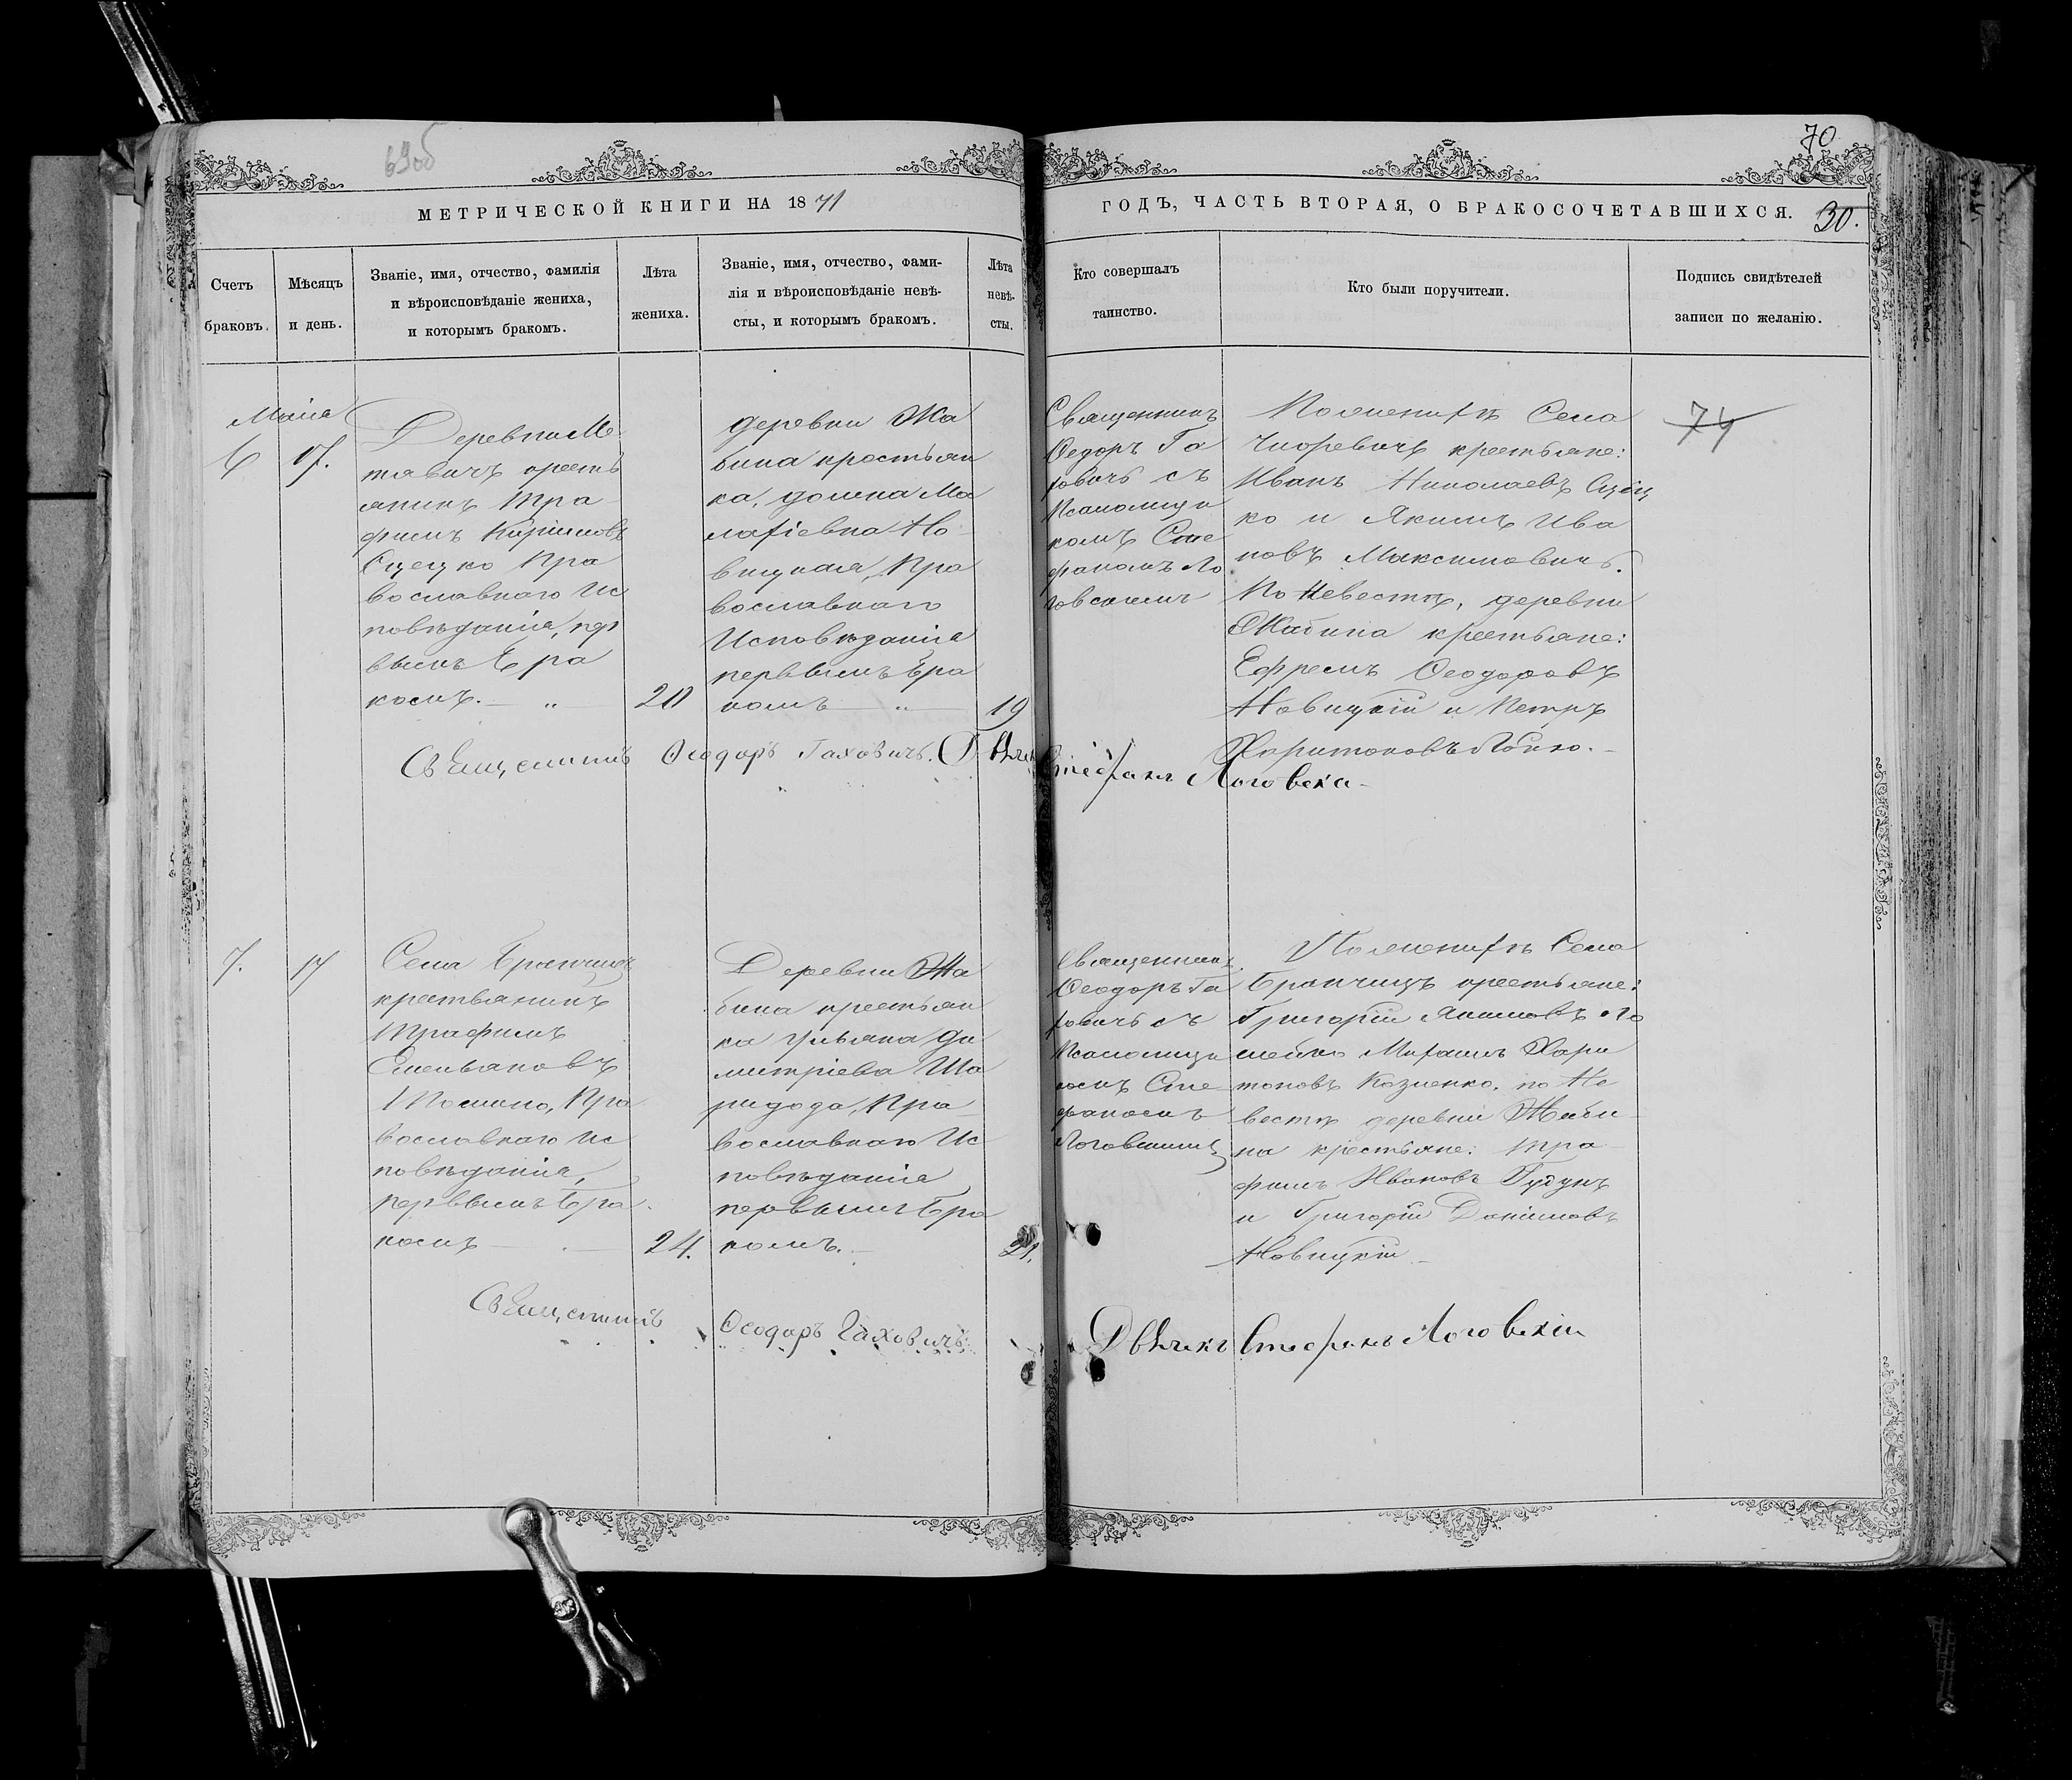 69об
70
МЕТРИЧЕСКОЙ КНИГИ НА 1871
ГОДЪ, ЧАСТЬ ВТОРАЯ, О БРАКОСОЧЕТАВШИХСЯ.
30.
Счетъ
браковъ.
Мѣсяцъ
и день.
Званіе, имя, отчество, фамилія
и вѣроисповѣданіе жениха,
и которымъ бракомъ.
Лѣта
жениха.
Званіе, имя, отчество, фами-
лія и вѣроисповѣданіе невѣ-
сты, и которымъ бракомъ.
Лѣта
невѣ-
сты.
Кто совершалъ
таинство.
Кто были поручители.
Подпись свидѣтелей
записи по желанію.
Маія
6
17.
Деревни Ме
тявичъ кресть
янинъ Тро
фимъ
Сцецко Пра
вославнаго Ис
повѣданія, пер
вымъ бра
комъ.
20
деревни Жа
бина крестьян
ка, домна Ма
лахіевна Но
вицкая, Пра
вославнаго
Исповѣданія
первымъ бра
комъ
19
Священникъ
Ѳедоръ Га
ховичъ съ
Псаломщи
комъ Сте
фаномъ Ло
говскимъ
По женихѣ Села
крестьяне:
Иванъ Николаевъ Сцец
ко и Якимъ Ива
новъ Максимовичъ.
По Невестѣ, деревни
Жабина крестьяне:
Ефремъ Ѳеодоровъ
Новицкій и Петръ
Харитоновъ
74
Священникъ Ѳеодоръ Гаховичъ. Дьячекъ Стефанъ Логовскій
7.
17
Села Бранчицъ
крестьянинъ
Трафимъ
Емельяновъ
Пра
вославнаго Ис
повѣданія,
первымъ бра
комъ
24.
Деревни Жа
бина крестьян
ка Ульяна Ди
митріева Ша
ридода, Пра
вославнаго Ис
повѣданія
первымъ бра
комъ.
21.
Священникъ
Ѳеодоръ Га
ховичъ съ
Псаломщи
комъ Сте
фаномъ
Логовскимъ
По женихѣ Села
Бранчицъ крестьяне:
Григорій Якимовъ Ло
шейко Михаилъ Хари
тоновъ Козленко. по Не
вестѣ деревни Жаби
на крестьяне: Тра
фимъ Ивановъ Гудунъ
и Григорій Даниловъ
Новицкій
Священникъ Ѳеодоръ Гаховичъ.
Дьячекъ Стефанъ Логовскій